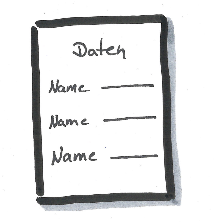 Daten
Name
Name
Name